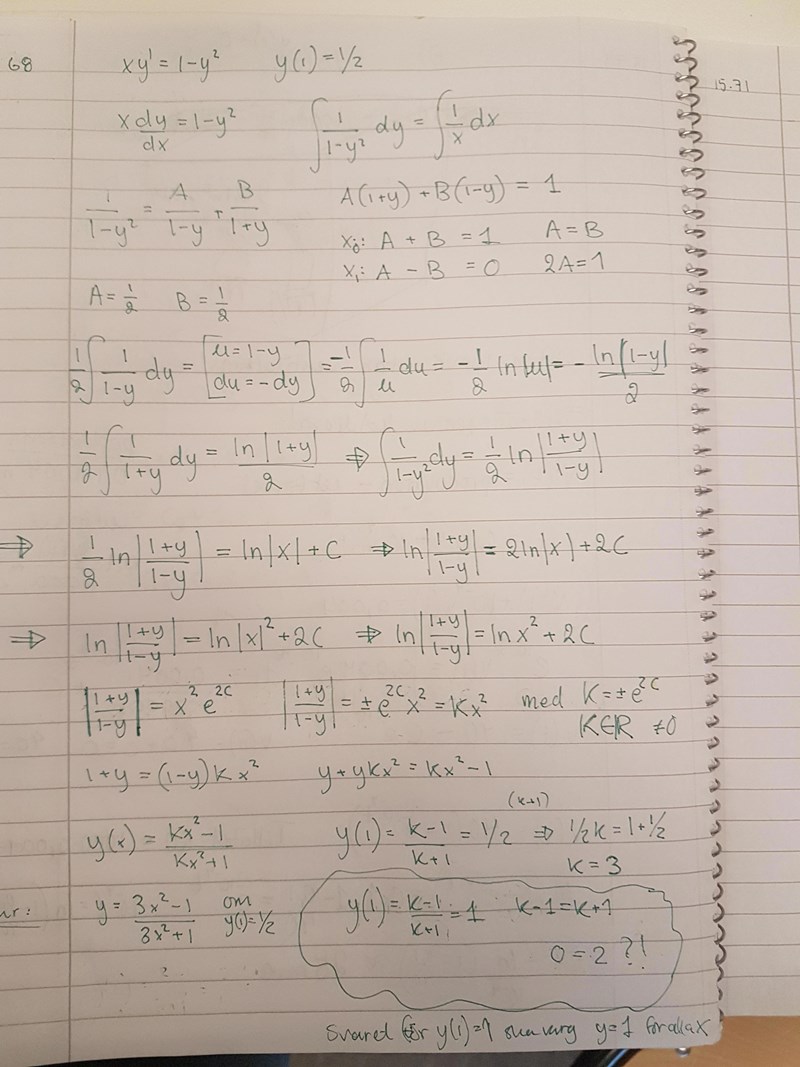 68 xy' = 1-y² y(1) = 1/2
15.71
x dy/dx = 1-y² ∫ 1/(1-y²) dy = ∫ 1/x dx
1/(1-y²) = A/(1-y) + B/(1+y) A(1+y) + B(1-y) = 1
x₀: A + B = 1 A = B
x₁: A - B = 0 2A = 1
A = 1/2 B = 1/2
1/2 ∫ 1/(1-y) dy = [u = 1-y du = -dy] = -1/2 ∫ 1/u du = -1/2 ln|u| = - ln|1-y|/2
1/2 ∫ 1/(1+y) dy = ln|1+y|/2 ⇒ ∫ 1/(1-y²) dy = 1/2 ln|(1+y)/(1-y)|
⇒ 1/2 ln|(1+y)/(1-y)| = ln|x| + C ⇒ ln|(1+y)/(1-y)| = 2ln|x| + 2C
⇒ ln|(1+y)/(1-y)| = ln|x|² + 2C ⇒ ln|(1+y)/(1-y)| = ln x² + 2C
|(1+y)/(1-y)| = x² e^(2C) |(1+y)/(1-y)| = ±e^(2C) x² = Kx² med K = ±e^(2C)
K∈R ≠0
1+y = (1-y)Kx² y + yKx² = Kx² - 1
(k+1)
y(x) = (Kx²-1)/(Kx²+1) y(1) = (k-1)/(k+1) = 1/2 ⇒ 1/2k = 1 + 1/2
K = 3
y = (3x²-1)/(3x²+1) om y(1) = 1/2 y(1) = (k-1)/(k+1) = 1 k-1 = k+1
0 = 2 ?!
?
Svared för y(1)=1 y=1 för alla x